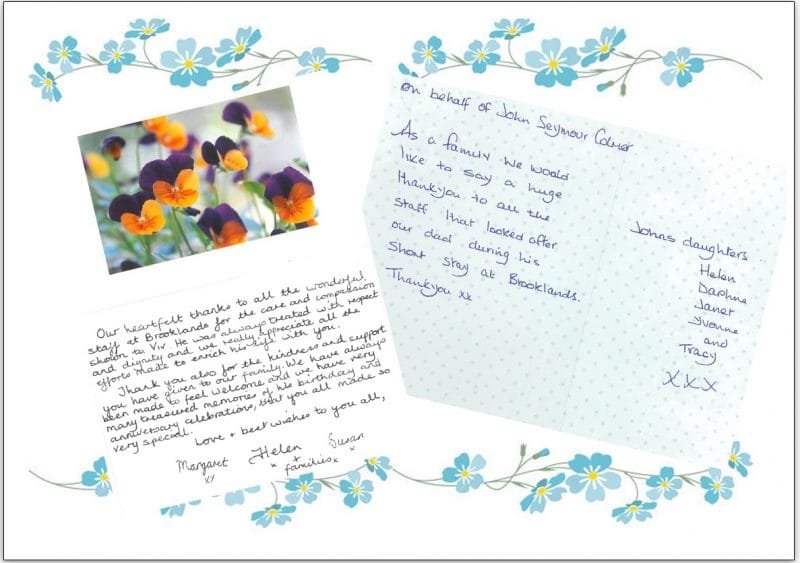 Our heartfelt thanks to all the wonderful
staff at Brooklands for the care and compassion
shown to Viv. He was always treated with respect
and dignity and we really appreciate all the
efforts made to enrich his life with you.
Thank you also for the kindness and support
you have given to our family. We have always
been made to feel welcome and we have very
many treasured memories of his birthday and
anniversary celebrations, that you all made so
very special.
Love + best wishes to you all,
Margaret Helen Susan
xx x + x
families x
On behalf of John Seymour
As a family we would
like to say a huge
thankyou to all the
staff that looked after
our dad during his
short stay at Brooklands.
Thankyou xx
Johns daughters
Helen
Daphne
Janet
Yvonne
and
Tracy
X X X